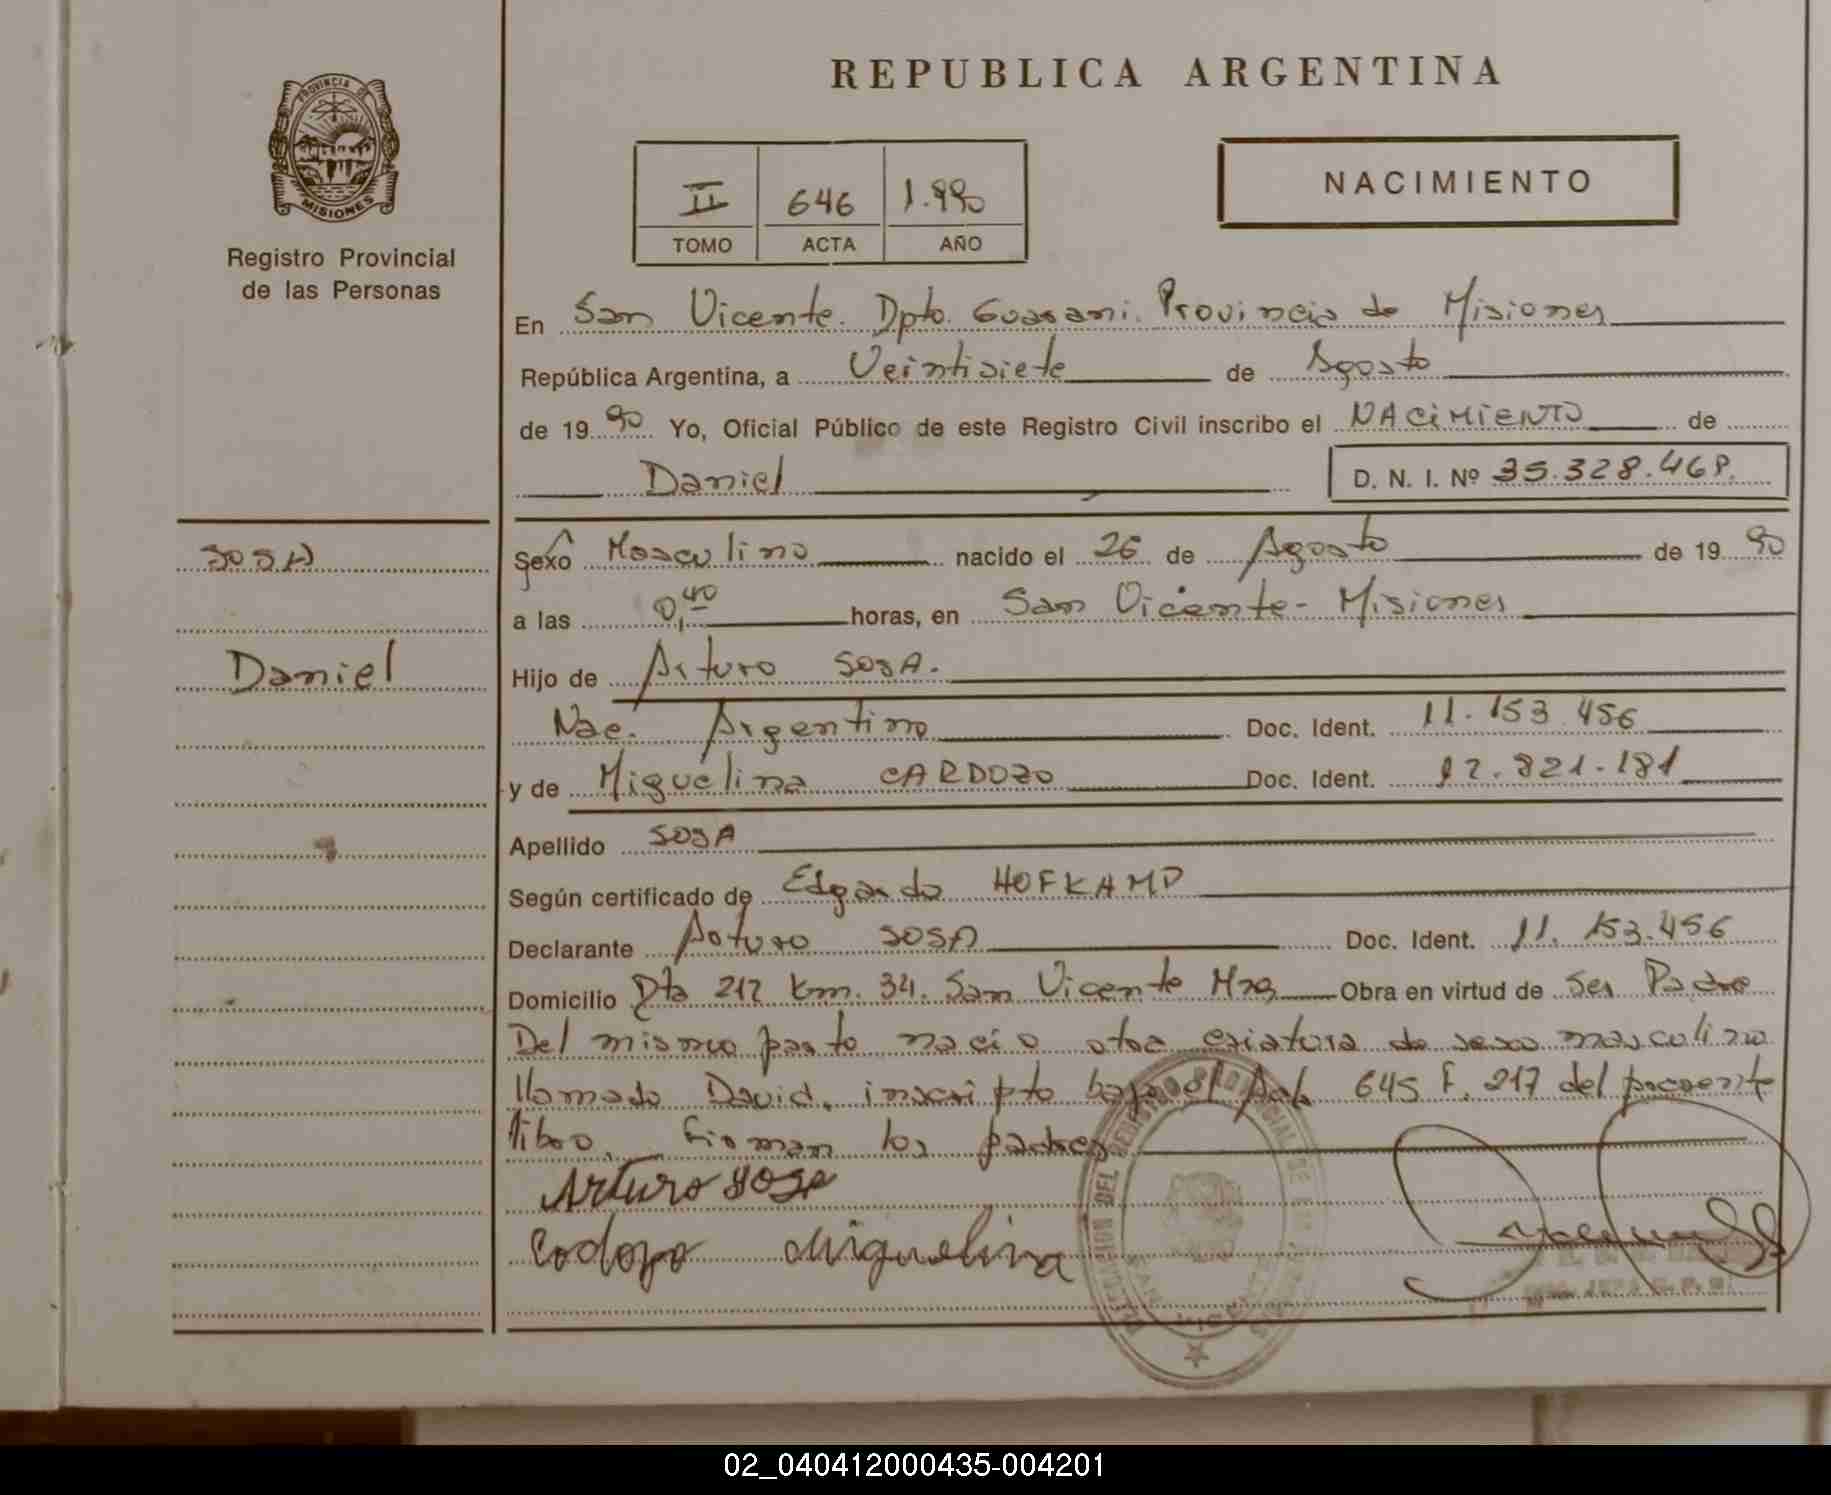 PROVINCIA DE
MISIONES
Registro Provincial
de las Personas
REPUBLICA ARGENTINA
II 646 1.990
TOMO ACTA AÑO
NACIMIENTO
En San Vicente. Dpto. Guarani. Provincia de Misiones
República Argentina, a Veintisiete de Agosto
de 1990 Yo, Oficial Público de este Registro Civil inscribo el NACIMIENTO de
Daniel D. N. I. Nº 35.328.468.
SOSA
Daniel
Sexo Masculino nacido el 26 de Agosto de 1990
a las 0,40 horas, en San Vicente - Misiones
Hijo de Arturo SOSA.
Nac. Argentino Doc. Ident. 11.153.456
y de Miguelina CARDOZO Doc. Ident. 12.821.181
Apellido SOSA
Según certificado de Edgardo HOFKAMP
Declarante Arturo SOSA Doc. Ident. 11.153.456
Domicilio Rta 212 Km. 34. San Vicente Mnes Obra en virtud de ser Padre
Del mismo parto nació otra criatura de sexo masculino
llamado David, inscripto bajo el 645 F. 217 del presente
libro. Firman los padres
Arturo Sosa
Miguelina
02_040412000435-004201